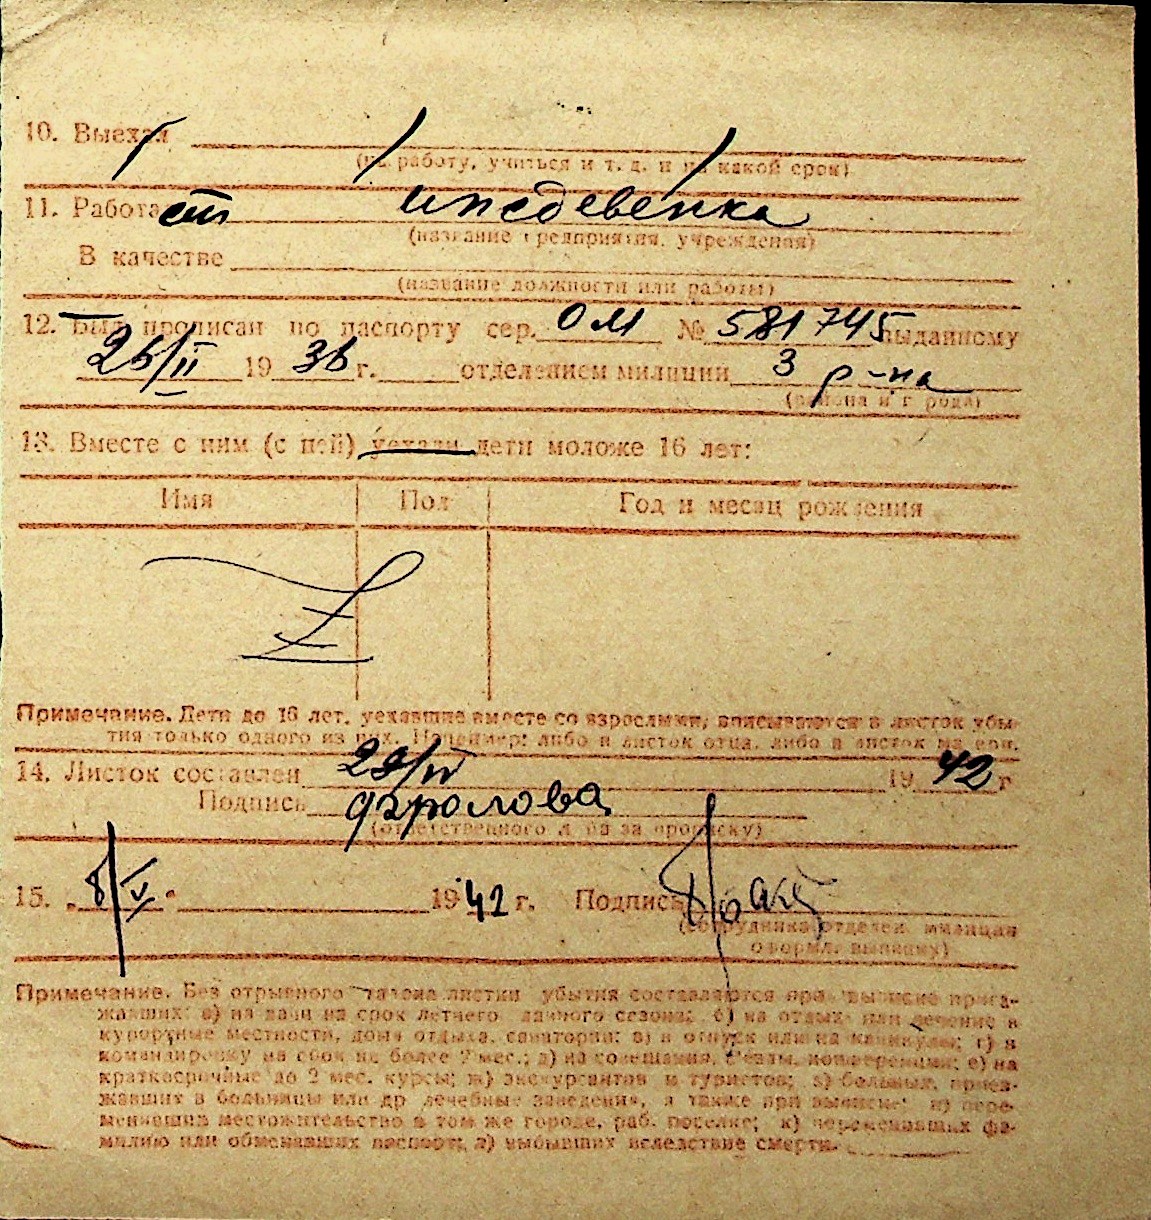 10. Выехал
(на работу, учиться и т. д. и на какой срок)
11. Работает иждевенка
(название предприятия, учреждения)
В качестве
(название должности или работы)
12. Был прописан по паспорту сер. ОМ № 581745 выданному
26/II 1936 г. отделением милиции 3 р-на
(района и города)
13. Вместе с ним (с ней) уехали дети моложе 16 лет:
Имя Пол Год и месяц рождения
Примечание. Дети до 16 лет, уехавшие вместе со взрослыми, вписываются в листок убы-
тия только одного из них. Например: либо в листок отца, либо в листок матери.
14. Листок составлен 29/IV 1942 г
Подпись Фролова
(ответственного лица за прописку)
15. „8/V" 1942 г. Подпись
(сотрудника отделен. милиции
оформл. выписку)
Примечание. Без отрывного талона листки убытия составляются при выписке приез-
жавших: а) на дачи на срок летнего дачного сезона; б) на отдых или лечение в
курортные местности, дома отдыха, санатории; в) в отпуск или на каникулы; г) в
командировку на срок не более 2 мес.; д) на совещания, съезды, конференции; е) на
краткосрочные до 2 мес. курсы; ж) экскурсантов и туристов; з) больных, приез-
жавших в больницы или др лечебные заведения, а также при выписке: и) пере-
менивших местожительство в том же городе, раб. поселке; к) переменивших фа-
милию или обменявших паспорт; л) выбывших вследствие смерти.